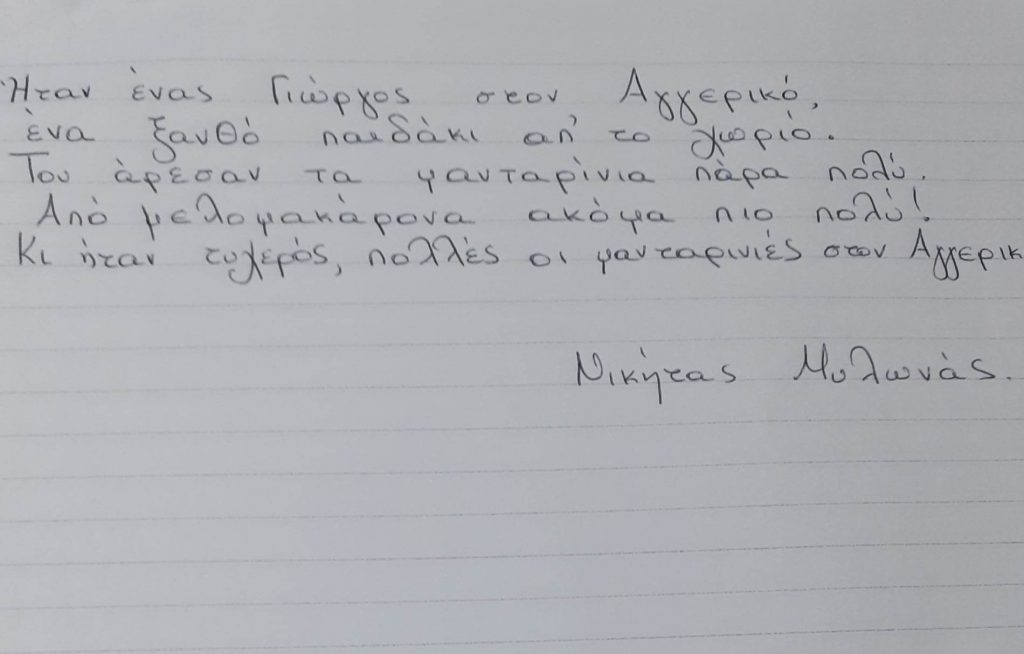 Ήταν ένας Γιώργος στον Αγγερικό,
ένα ξανθό παιδάκι απ' το χωριό.
Του άρεσαν τα μανταρίνια πάρα πολύ.
Από μελομακάρονα ακόμα πιο πολύ!
Κι ήταν τυχερός, πολλές οι μανταρινιές στον Αγγερικ
Νικήτας Μυλωνάς.